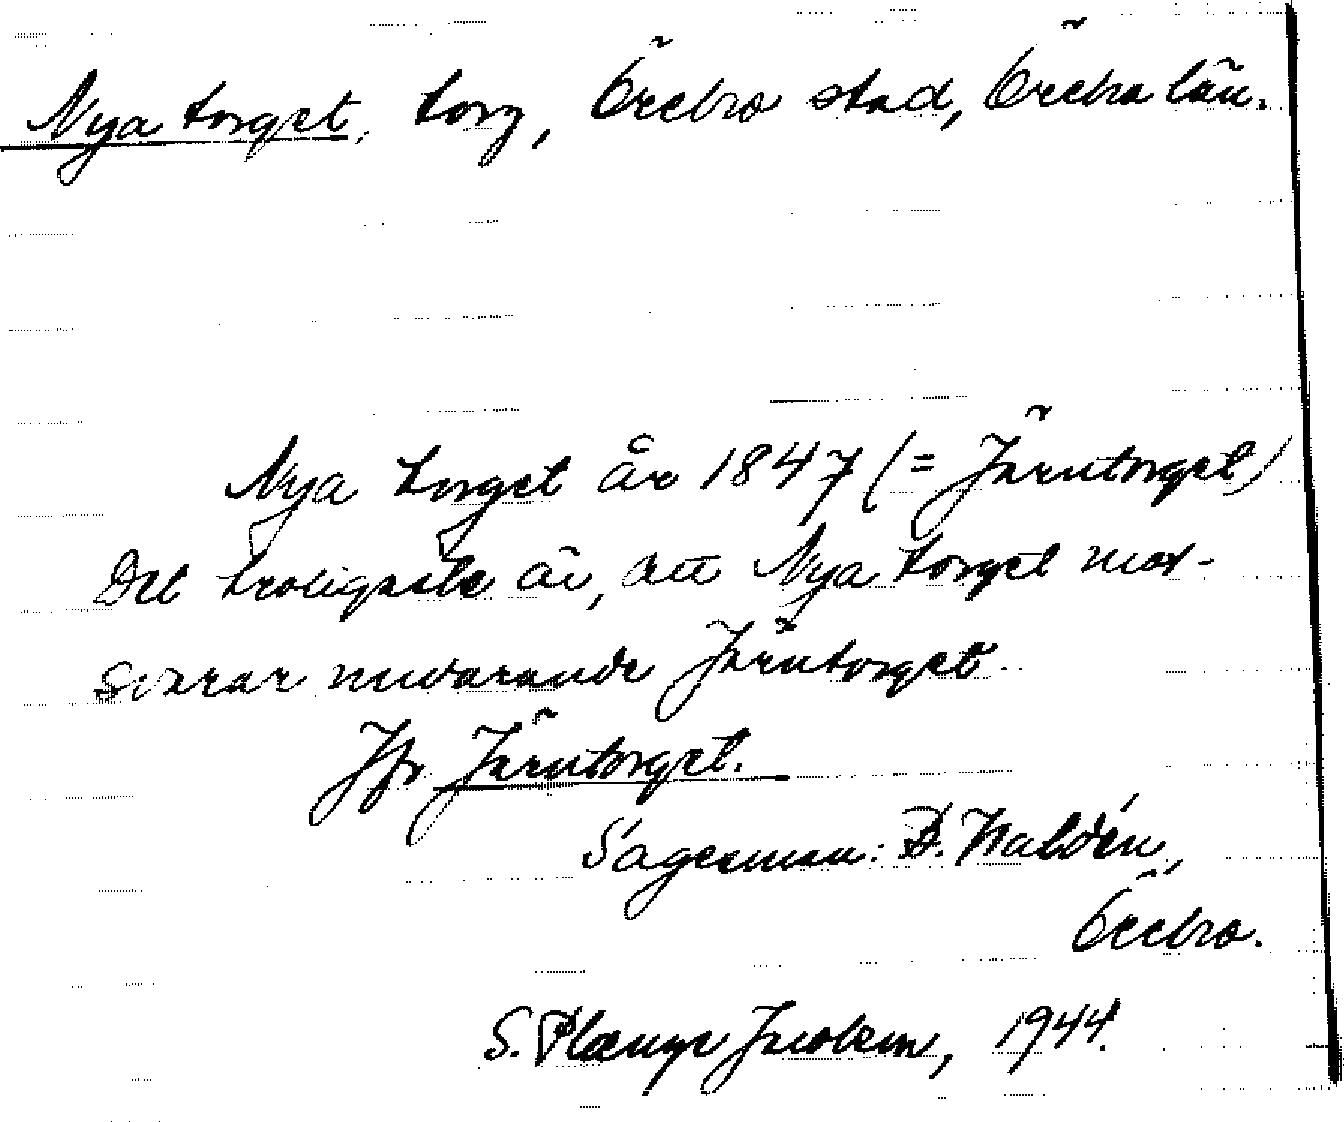 Nya torget, torg, Örebro stad, Örebro län.
Nya torget år 1847 (= Järntorget)
Det troligaste är, att Nya torget mot-
svarar nuvarande Järntorget.
Jfr Järntorget.
Sagesman: B. Waldén,
Örebro.
S. Jacobson, 1944.